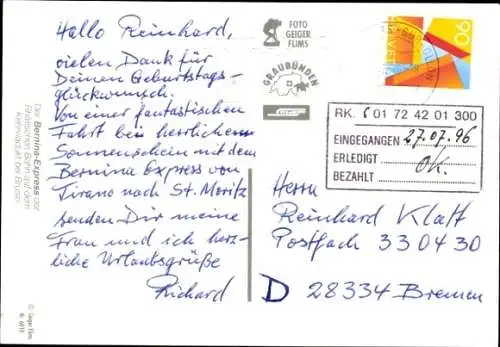 Hallo Reinhard,
vielen Dank für
Deinen Geburtstags-
glückwunsch.
Von einer fantastischen
Fahrt bei herrlichem
Sonnenschein mit dem
Bernina Express von
Tirano nach St. Moritz
senden Dir meine
Frau und ich herz-
liche Urlaubsgrüße
Richard
Der Bernina-Express der
Rhätischen Bahn auf dem
Kehrviadukt bei Brusio.
© Geiger Flims
FOTO
GEIGER
FLIMS
GRAUBÜNDEN
90
RK. C 01 72 42 01 300
EINGEGANGEN 27.07.96
ERLEDIGT
BEZAHLT OK.
Herrn
Reinhard Klatt
Postfach 330430
D 28334 Bremen